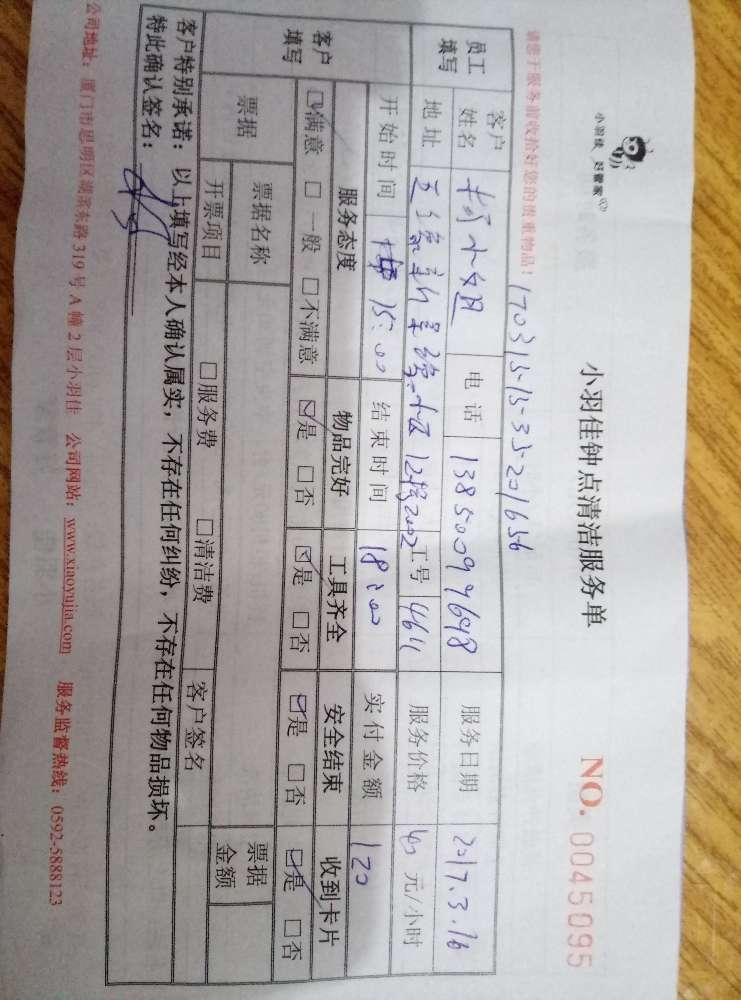 小羽佳 好管家
小羽佳钟点清洁服务单
NO. 0045095
请您于服务前收拾好您的贵重物品! 170315-15-33-201656
员工填写 客户姓名 小姐 电话 13850099698 服务日期 2017.3.16
地址 12幢2002 工号 4611 服务价格 40 元/小时
开始时间 15:00 结束时间 18:00 实付金额 120
客户填写 服务态度 物品完好 工具齐全 安全结束 收到卡片
☑满意 □一般 □不满意 ☑是 □否 ☑是 □否 ☑是 □否 ☑是 □否
票据 票据名称 票据金额
开票项目 □服务费 □清洁费 客户签名
客户特别承诺:以上填写经本人确认属实,不存在任何纠纷,不存在任何物品损坏。
特此确认签名:
公司地址:厦门市思明区湖滨东路319号A幢2层小羽佳 公司网站:www.xiaoyujia.com 服务监督热线:0592-5888123